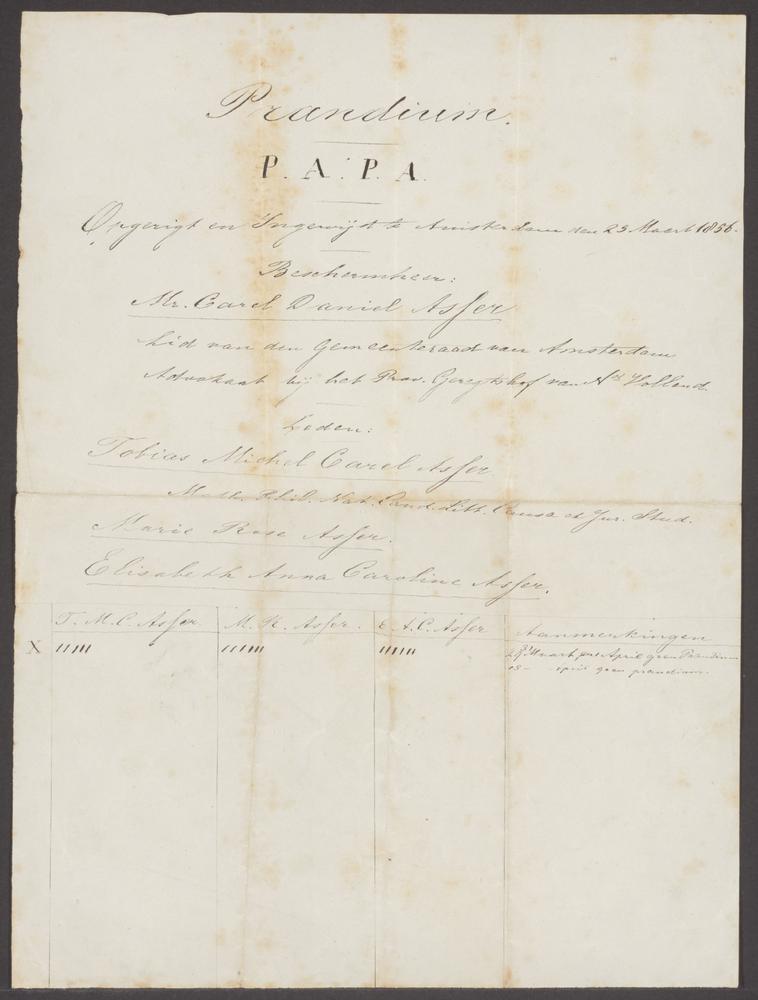 Prandium.
P. A. P. A.
Opgerigt en Ingewijd te Amsterdam den 23 Maart 1856.
Beschermheer:
Mr. Carel Daniel Asser
Lid van den Gemeenteraad van Amsterdam
Advokaat bij het Prov. Geregtshof van Nd Holland.
Leden:
Tobias Michel Carel Asser
Math. Phil. Nat. Cand. Litt. Hum. et Jur. Stud.
Marie Rose Asser.
Elisabeth Anna Caroline Asser.
T. M. C. Asser M. R. Asser. E. A. C. Asser Aanmerkingen
X Maart April geen Prandium
april geen prandium.